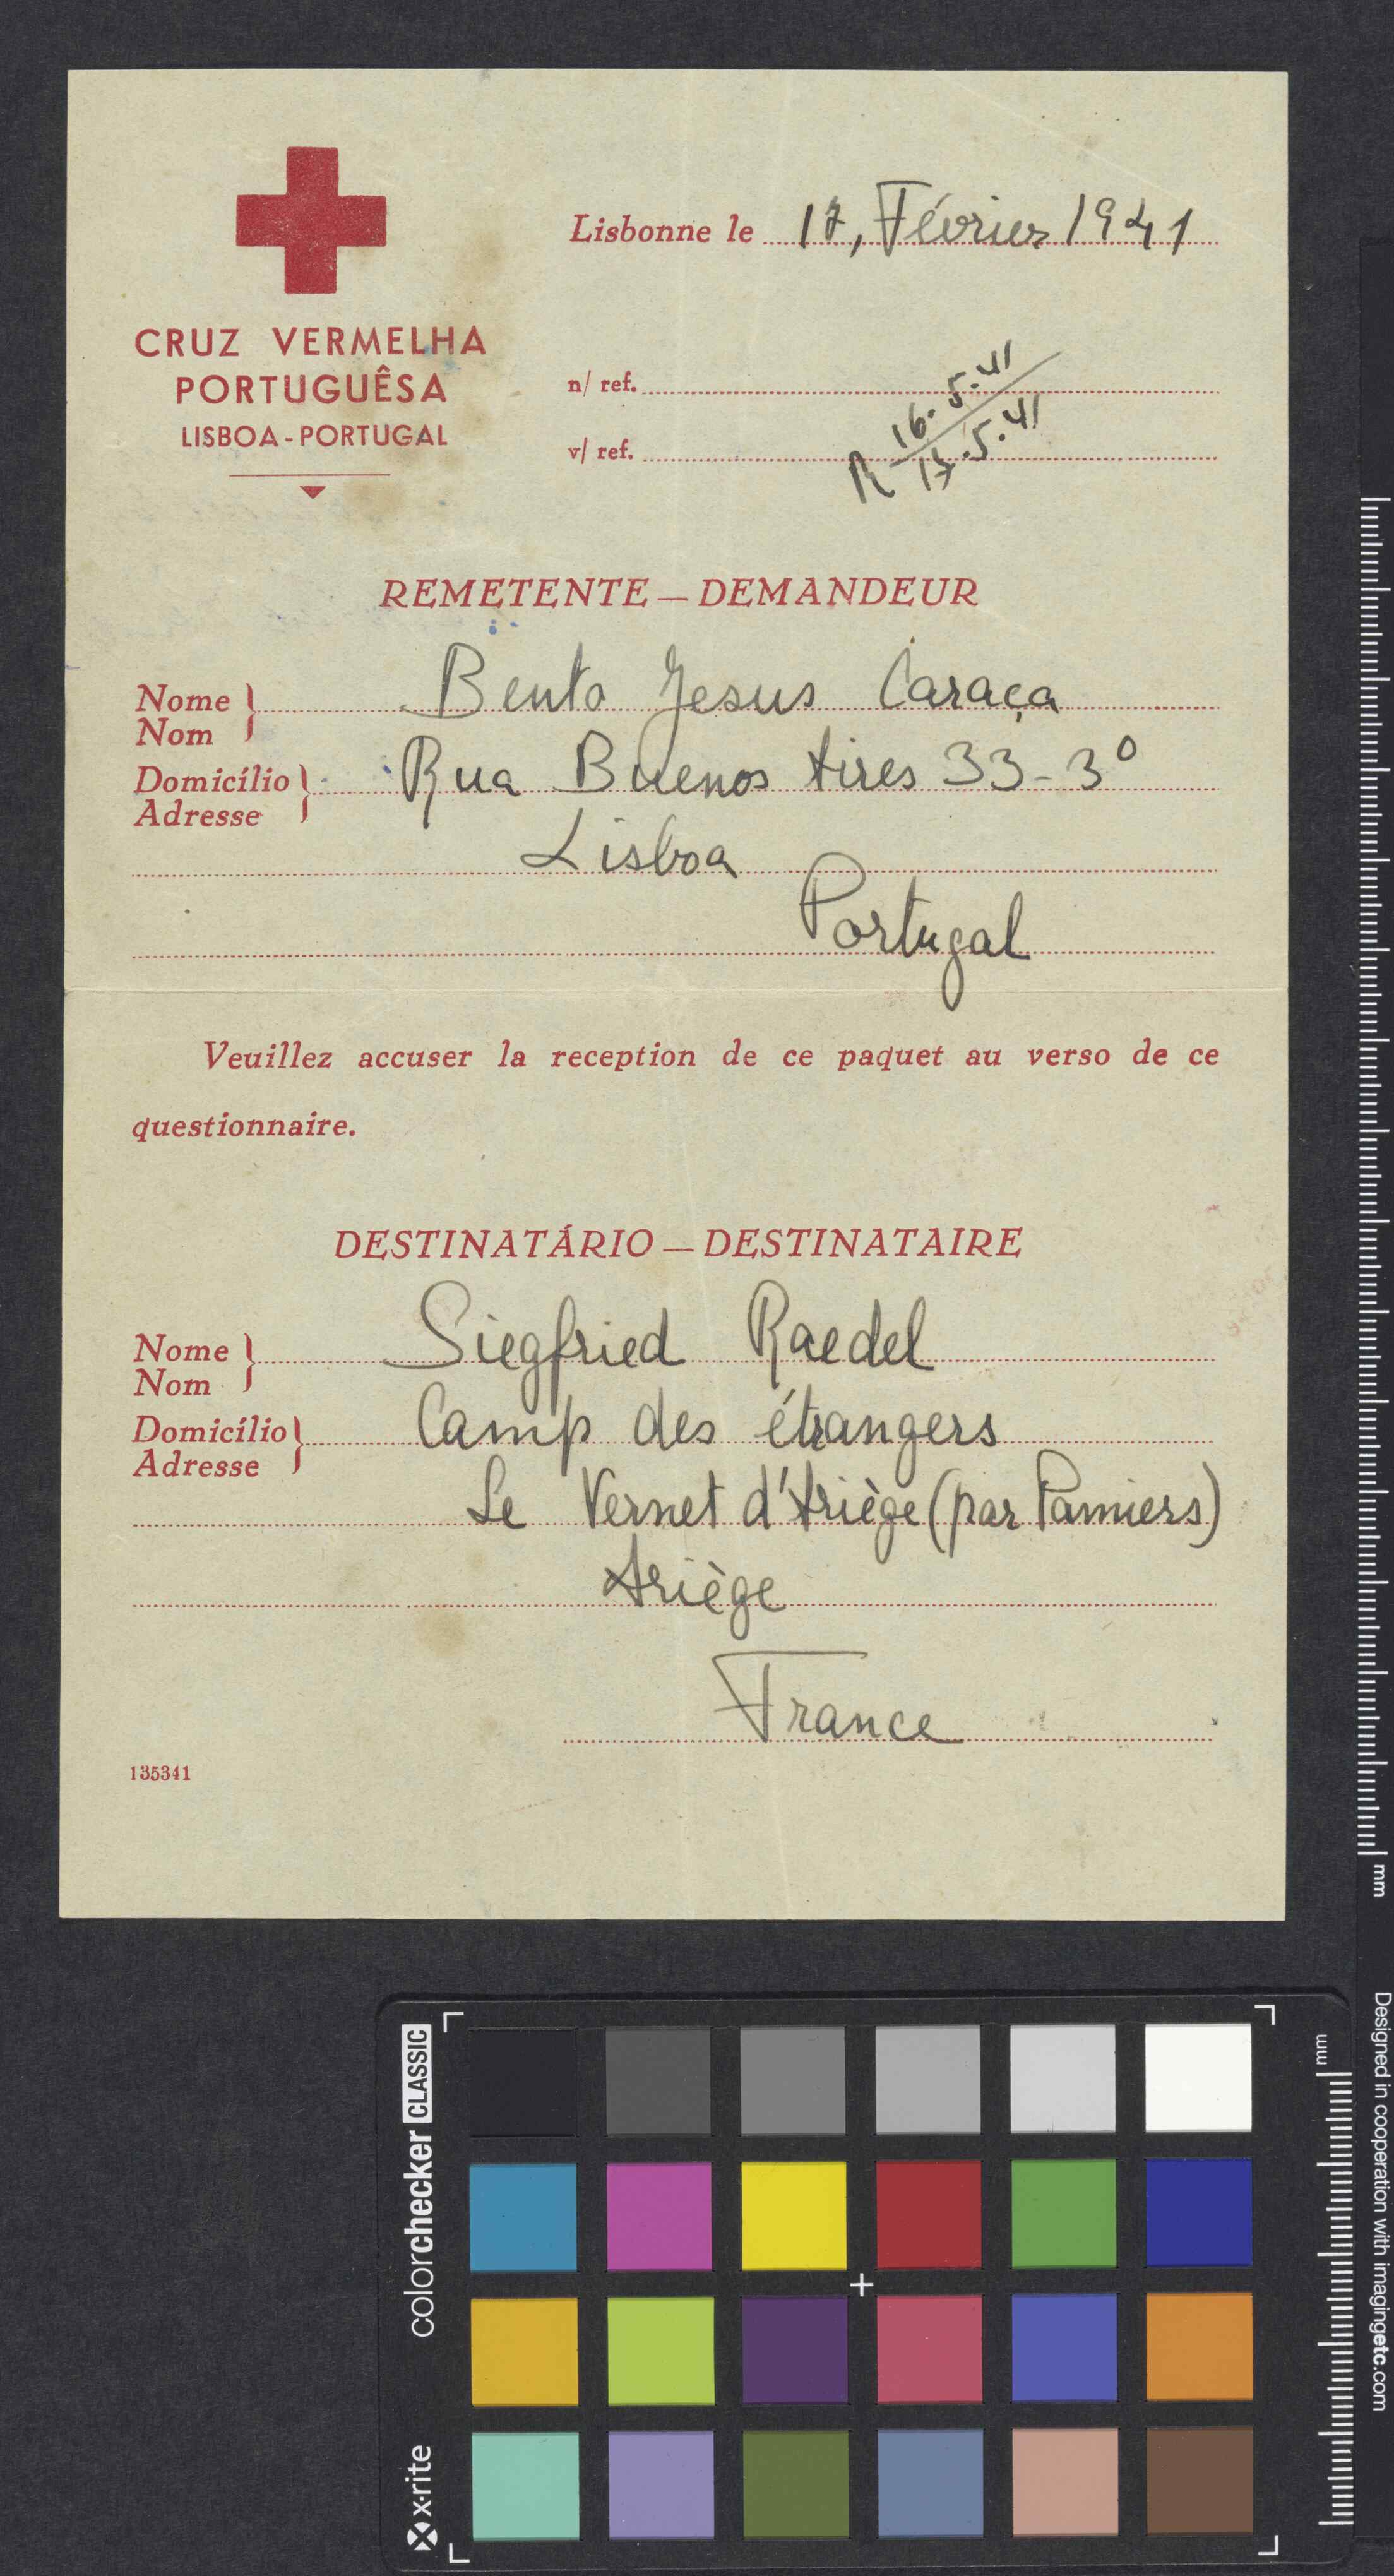 CRUZ VERMELHA
PORTUGUÊSA
LISBOA - PORTUGAL
Lisbonne le 17, Février 1941
n/ ref.
v/ ref.
R 16.5.41
17.5.41
REMETENTE — DEMANDEUR
Nome } Bento Jesus Caraça
Nom
Domicílio } Rua Buenos Aires 33-3º
Adresse
Lisboa
Portugal
Veuillez accuser la reception de ce paquet au verso de ce
questionnaire.
DESTINATÁRIO — DESTINATAIRE
Nome } Siegfried Raedel
Nom
Domicílio } Camp des étrangers
Adresse
Le Vernet d'Ariège (par Pamiers)
Ariège
France
135341
mm
Designed in cooperation with imagingetc.com
mm
x-rite colorchecker CLASSIC